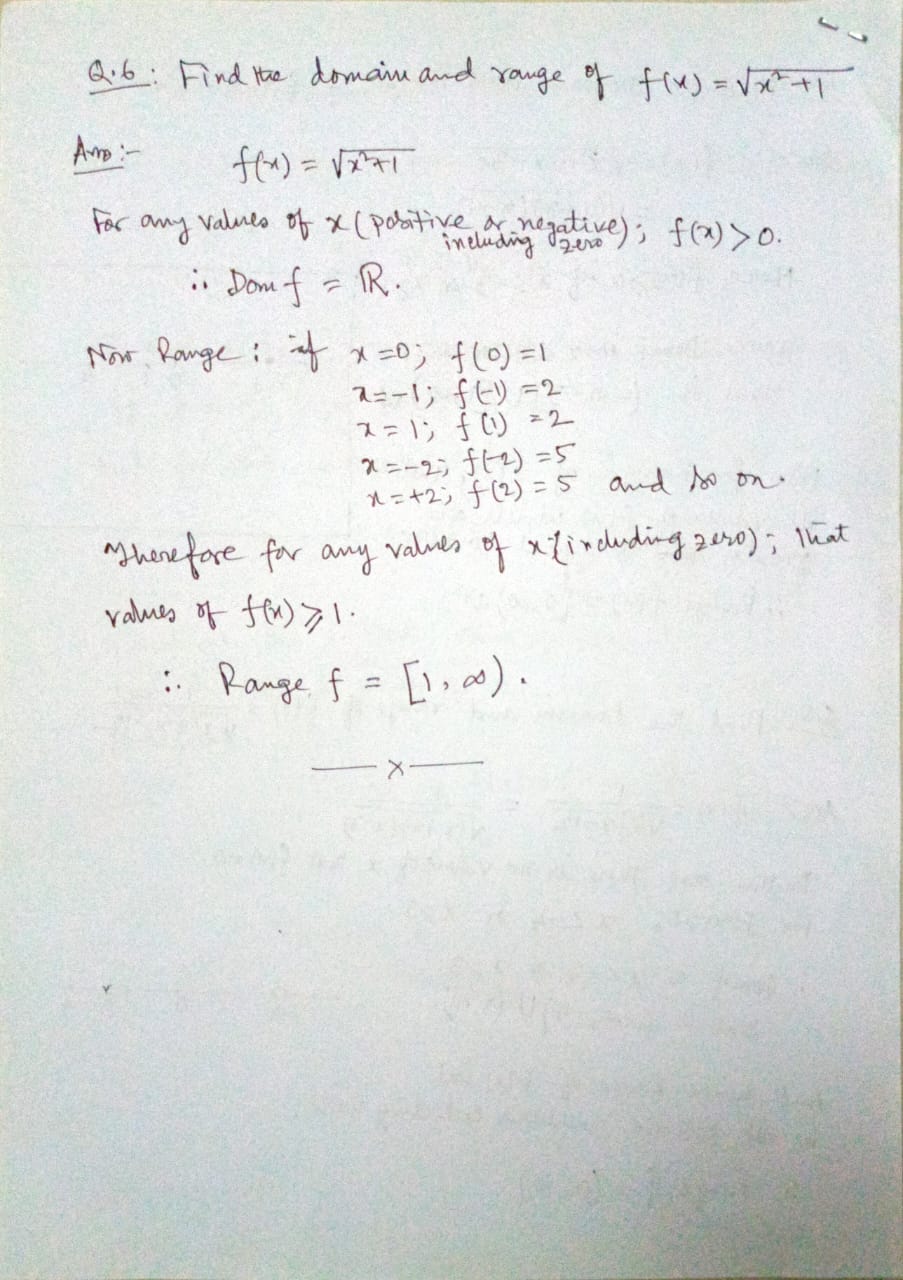 Q.6: Find the domain and range of f(x) = √x²+1
Ans:- f(x) = √x²+1
For any values of x (positive or negative including zero); f(x) > 0.
∴ Dom f = ℝ.
Now Range: if x=0; f(0) = 1
x=-1; f(-1) = 2
x = 1; f(1) = 2
x = -2; f(-2) = 5
x = +2; f(2) = 5 and so on.
Therefore for any values of x (including zero); that
values of f(x) ⩾ 1.
∴ Range f = [1, ∞).
—x—